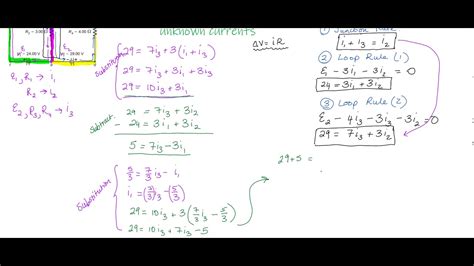 unknown currents
R₃ = 4.00 Ω
E₁, R₁ → i₁
R₂ → i₂
E₂, R₃, R₄ → i₃
Substitution
29 = 7i₃ + 3(i₁ + i₃)
29 = 7i₃ + 3i₁ + 3i₃
29 = 10i₃ + 3i₁
Subtract
29 = 7i₃ + 3i₂
− 24 = 3i₁ + 3i₂
5 = 7i₃ − 3i₁
Substitution
5/3 = 7/3 i₃ − i₁
29 = 10i₃ + 3(7/3 i₃ − 5/3)
29 = 10i₃ + 7i₃ − 5
ΔV = iR
29 + 5 =
① Junction Rule
i₁ + i₃ = i₂
② Loop Rule (1)
E₁ − 3i₁ − 3i₂ = 0
24 = 3i₁ + 3i₂
③ Loop Rule (2)
E₂ − 4i₃ − 3i₃ − 3i₂ = 0
29 = 7i₃ + 3i₂